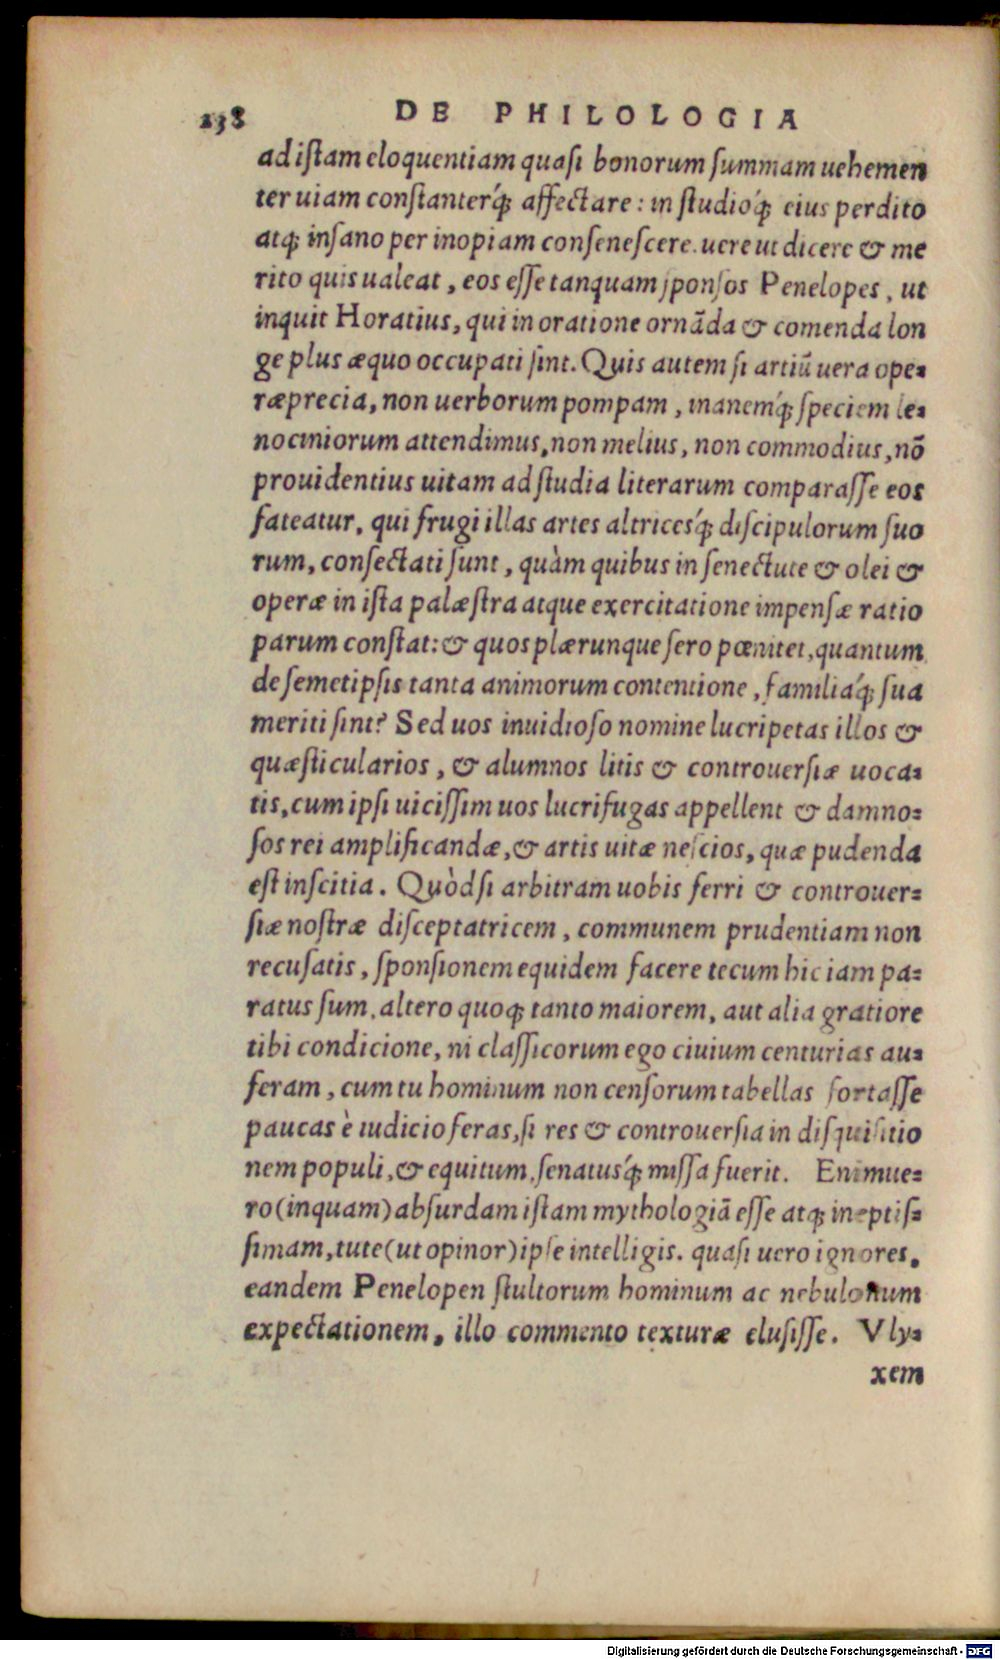 238 DE PHILOLOGIA
ad iſtam eloquentiam quaſi bonorum ſummam uehemen
ter uiam conſtanterq́; affectare: in ſtudioq́; eius perdito
atq; inſano per inopiam conſeneſcere. uere ut dicere & me
rito quis ualeat, eos eſſe tanquam ſponſos Penelopes, ut
inquit Horatius, qui in oratione ornãda & comenda lon
ge plus æquo occupati ſint. Quis autem ſi artiũ uera ope-
ræprecia, non uerborum pompam, inanemq́; ſpeciem le-
nociniorum attendimus, non melius, non commodius, nõ
prouidentius uitam ad ſtudia literarum comparaſſe eos
fateatur, qui frugi illas artes altricesq́; diſcipulorum ſuo
rum, conſectati ſunt, quàm quibus in ſenectute & olei &
operæ in iſta palæſtra atque exercitatione impenſæ ratio
parum conſtat: & quos plærunque ſero pœnitet, quantum
de ſemetipſis tanta animorum contentione, familiaq́; ſua
meriti ſint? Sed uos inuidioſo nomine lucripetas illos &
quæſticularios, & alumnos litis & controuerſiæ uoca-
tis, cum ipſi uiciſſim uos lucrifugas appellent & damno-
ſos rei amplificandæ, & artis uitæ neſcios, quæ pudenda
eſt inſcitia. Quòd ſi arbitram uobis ferri & controuer-
ſiæ noſtræ diſceptatricem, communem prudentiam non
recuſatis, ſponſionem equidem facere tecum hic iam pa-
ratus ſum, altero quoq; tanto maiorem, aut alia gratiore
tibi condicione, ni claſſicorum ego ciuium centurias au-
feram, cum tu hominum non cenſorum tabellas fortaſſe
paucas è iudicio feras, ſi res & controuerſia in diſquiſitio
nem populi, & equitum, ſenatusq́; miſſa fuerit. Enimue-
ro (inquam) abſurdam iſtam mythologiã eſſe atq; ineptiſ-
ſimam, tute (ut opinor) ipſe intelligis. quaſi uero ignores,
eandem Penelopen ſtultorum hominum ac nebulonum
expectationem, illo commento texturæ eluſiſſe. Vly-
xem
Digitalisierung gefördert durch die Deutsche Forschungsgemeinschaft - DFG